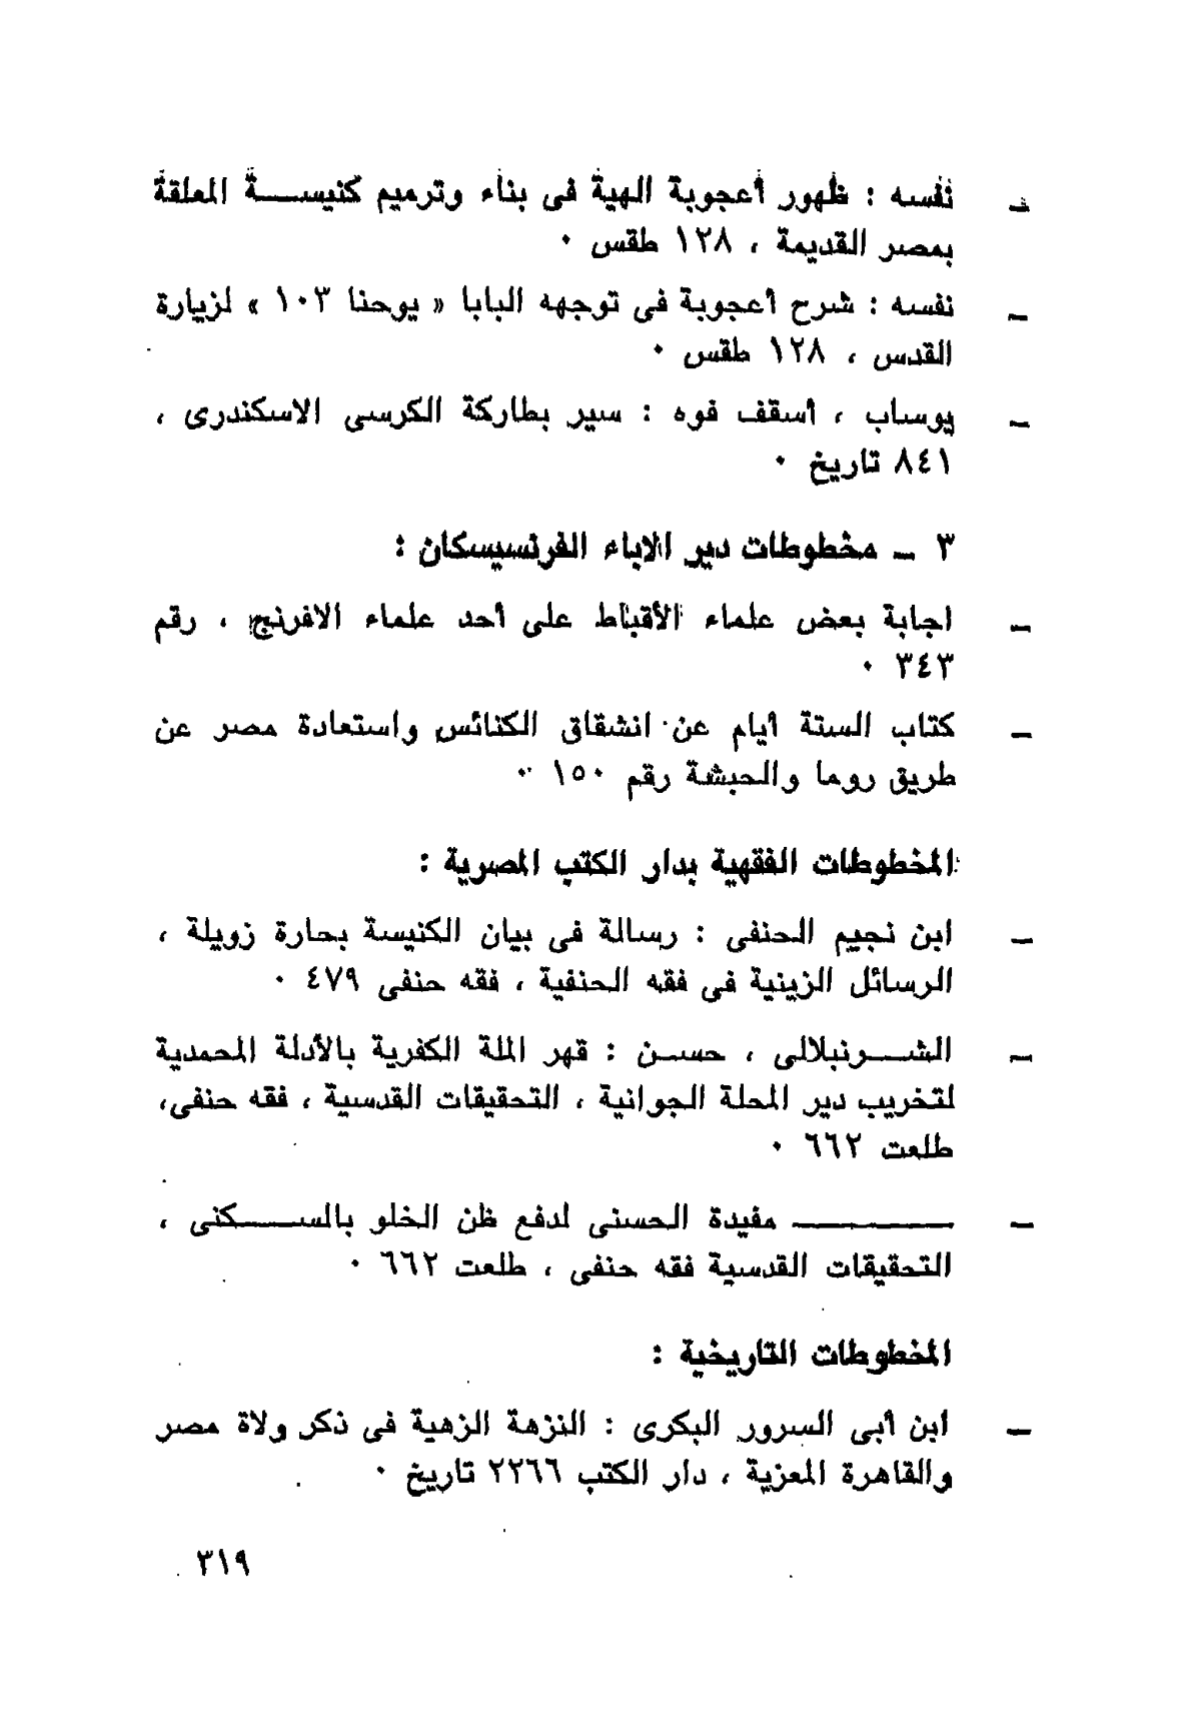 ـ نفسه : ظهور أعجوبة الهية فى بناء وترميم كنيســـة المعلقة
بمصر القديمة ، ١٢٨ طقس ٠
ـ نفسه : شرح أعجوبة فى توجهه البابا « يوحنا ١٠٣ » لزيارة
القدس ، ١٢٨ طقس ٠
ـ يوساب ، أسقف فوه : سير بطاركة الكرسى الاسكندرى ،
٨٤١ تاريخ ٠
٣ ـ مخطوطات دير الاباء الفرنسيسكان :
ـ اجابة بعض علماء الأقباط على أحد علماء الافرنج ، رقم
٣٤٣ ٠
ـ كتاب الستة أيام عن انشقاق الكنائس واستعادة مصر عن
طريق روما والحبشة رقم ١٥٠ ٠
المخطوطات الفقهية بدار الكتب المصرية :
ـ ابن نجيم الحنفى : رسالة فى بيان الكنيسة بحارة زويلة ،
الرسائل الزينية فى فقه الحنفية ، فقه حنفى ٤٧٩ ٠
ـ الشـــرنبلالى ، حســن : قهر الملة الكفرية بالأدلة المحمدية
لتخريب دير المحلة الجوانية ، التحقيقات القدسية ، فقه حنفى،
طلعت ٦٦٢ ٠
ـ ـــــــــــ مفيدة الحسنى لدفع ظن الخلو بالســـكنى ،
التحقيقات القدسية فقه حنفى ، طلعت ٦٦٢ ٠
المخطوطات التاريخية :
ـ ابن أبى السرور البكرى : النزهة الزهية فى ذكر ولاة مصر
والقاهرة المعزية ، دار الكتب ٢٢٦٦ تاريخ ٠
٣١٩